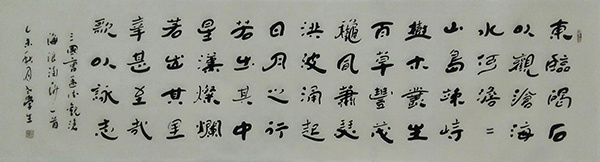 東臨碣石
以觀滄海
水何澹〻
山島竦峙
樹木叢生
百草豐茂
龝風蕭瑟
洪波涌起
日月之行
若出其中
星漢燦爛
若出其里
幸甚至哉
歌以詠志
三國曹
海 一首
乙未秋月